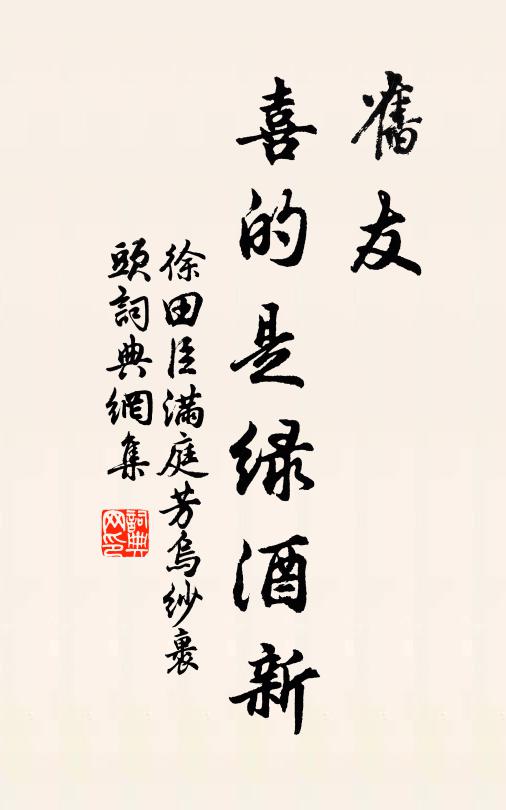 舊友
喜的是緑酒新
徐田臣满庭芳烏紗裹
頭詞典網集
詞典
网印